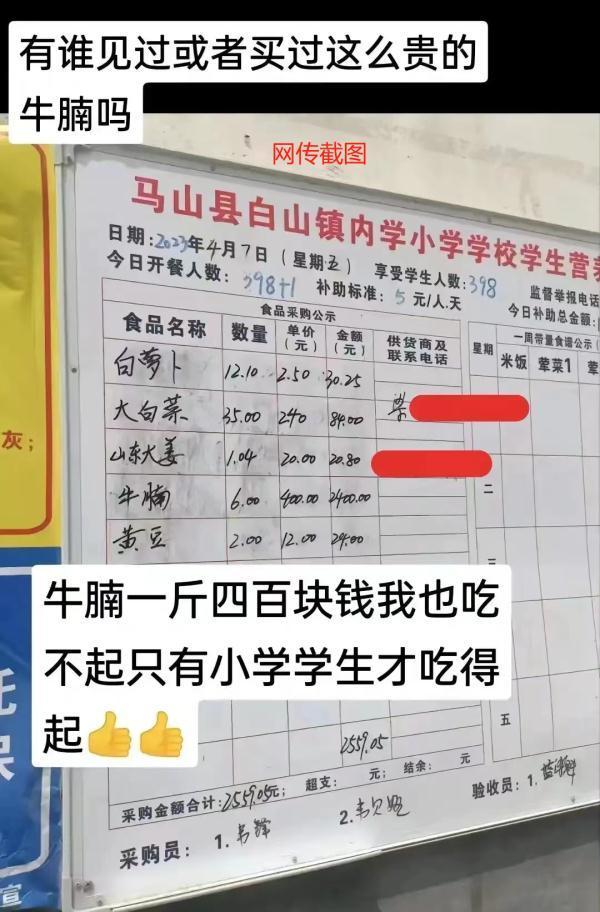 有谁见过或者买过这么贵的
牛腩吗
网传截图
马山县白山镇内学小学学校学生营养
日期:2023年4月7日（星期五） 享受学生人数:398 监督举报电话
今日开餐人数: 398+1 补助标准: 5 元/人.天 今日补助总金额:
食品采购公示 一周带量食谱公示（
食品名称 数量 单价（元） 金额（元） 供货商及联系电话 星期 米饭 荤菜1 荤
白萝卜 12.10 2.50 30.25
大白菜 35.00 240 84.00
山东大姜 1.04 20.00 20.80
牛腩 6.00 400.00 2400.00
黄豆 2.00 12.00 24.00
二
灰；
牛腩一斤四百块钱我也吃
不起只有小学学生才吃得
起👍👍
五
2559.05
采购金额合计:2559.05元； 超支： 元； 结余： 元；
采购员： 1. 2. 验收员：1.
宣